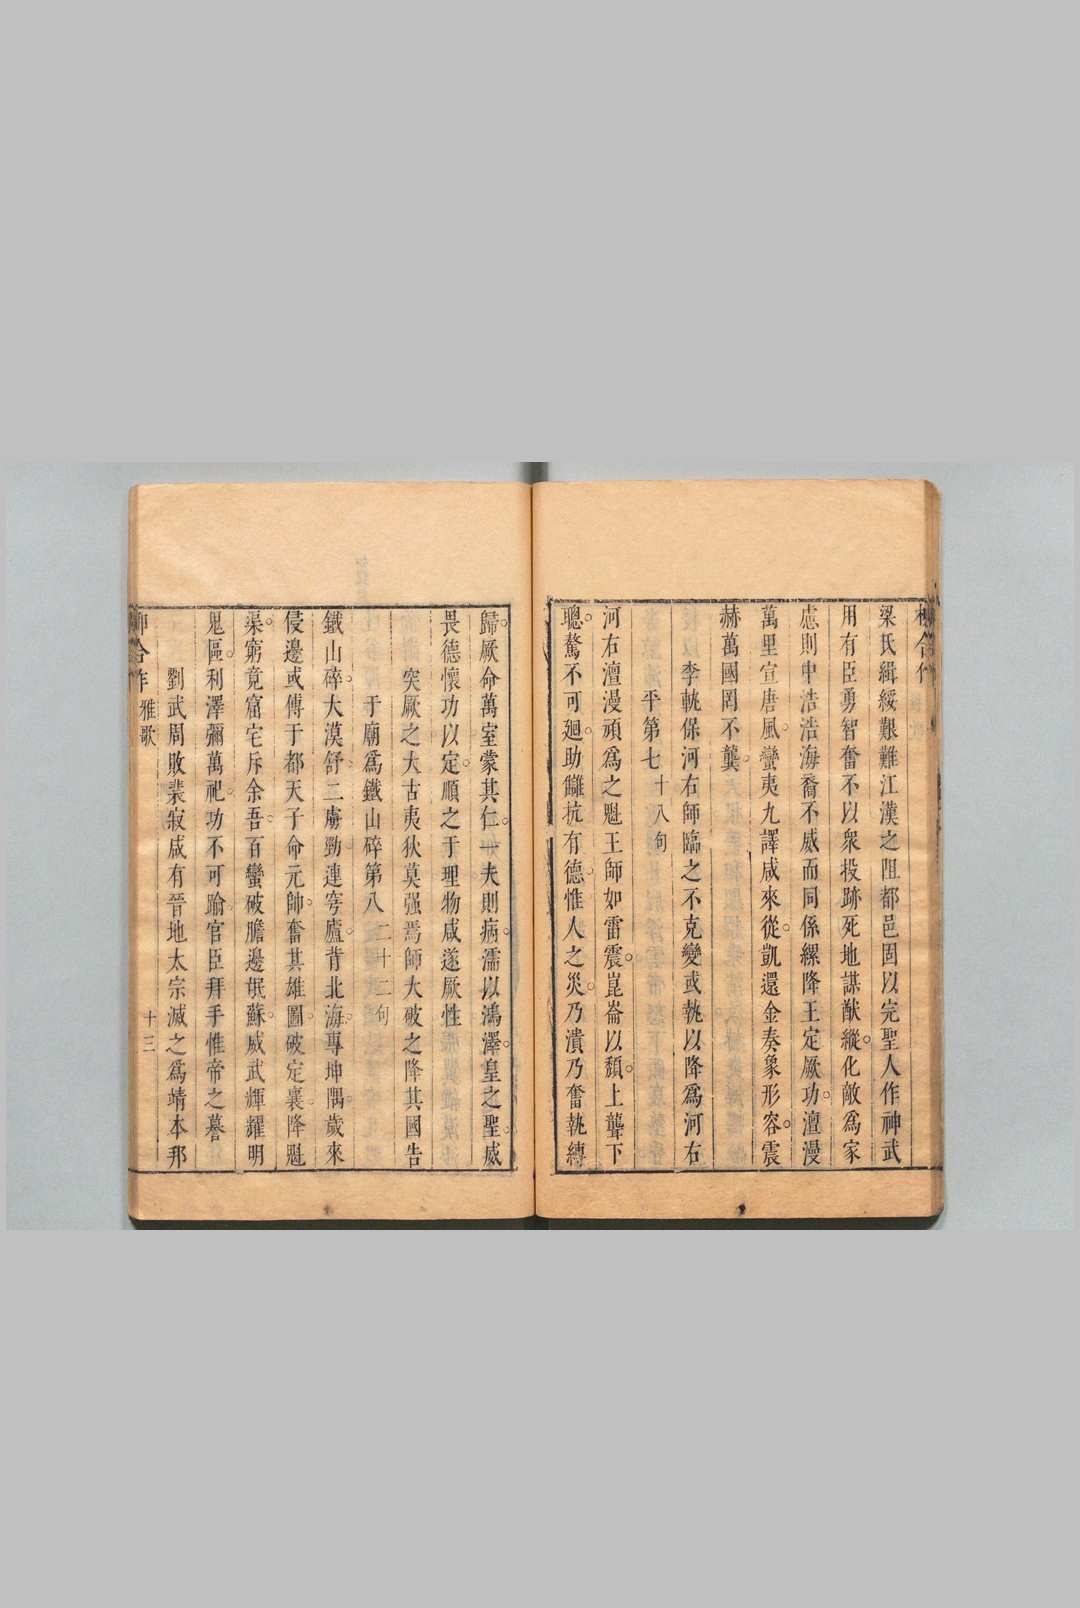 梁氏緝綏艱難江漢之阻都邑固以完聖人作神武
用有臣勇智奮不以衆投跡死地謀猷縱化敵爲家
慮則中浩浩海裔不威而同係縲降王定厥功澶漫
萬里宣唐風蠻夷九譯咸來從凱還金奏象形容震
赫萬國罔不龔
李軌保河右師臨之不克變或執以降爲河右
平第七十八句
河右澶漫頑爲之魁王師如雷震崑崙以頹上聾下
聰驁不可廻助讎抗有德惟人之災乃潰乃奮執縛
歸厥命萬室蒙其仁一夫則病濡以鴻澤皇之聖威
畏德懷功以定順之于理物咸遂厥性
突厥之大古夷狄莫强焉師大破之降其國告
于廟爲鐵山碎第八二十二句
鐵山碎大漠舒二虜勁連穹廬背北海專坤隅歲來
侵邊或傅于都天子命元帥奮其雄圖破定襄降魁
渠窮竟窟宅斥余吾百蠻破膽邊氓蘇威武輝耀明
鬼區利澤彌萬祀功不可踰官臣拜手惟帝之謩
劉武周敗裴寂咸有晉地太宗滅之爲靖本邦
合作 雅歌 十三